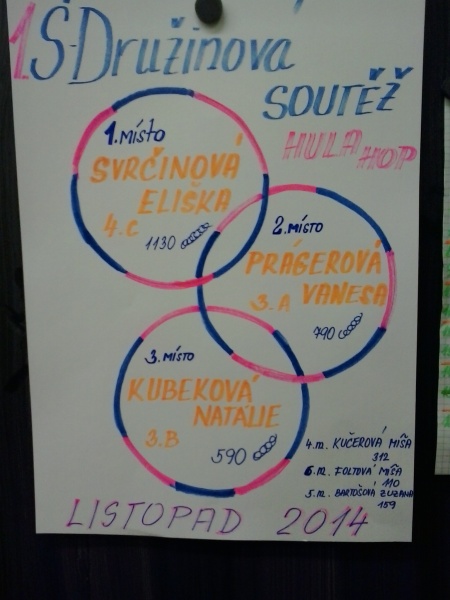 1.Š-Družinová
SOUTĚŽ
HULA HOP
1.MÍSTO
SVRČINOVÁ
ELIŠKA
4.C
1130
2.MÍSTO
PRÁGEROVÁ
3.A VANESA
790
3.MÍSTO
KUBEKOVÁ
NATÁLIE
3.B
590
4.M. KUČEROVÁ MÍŠA
312
6.M. FOLTOVÁ MÍŠA
110
5.M. BARTOŠOVÁ ZUZANA
159
LISTOPAD 2014